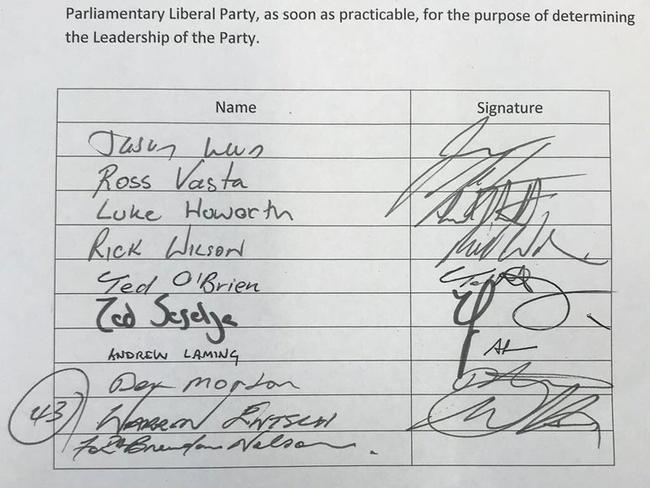 Parliamentary Liberal Party, as soon as practicable, for the purpose of determining
the Leadership of the Party.
Name Signature
Jason
Ross Vasta
Luke Howarth
RICK WILSON
Ted O'Brien
Zed Seselja
ANDREW LAMING
Ben Morton
43 WARREN ENTSCH
For Brendan Nelson.